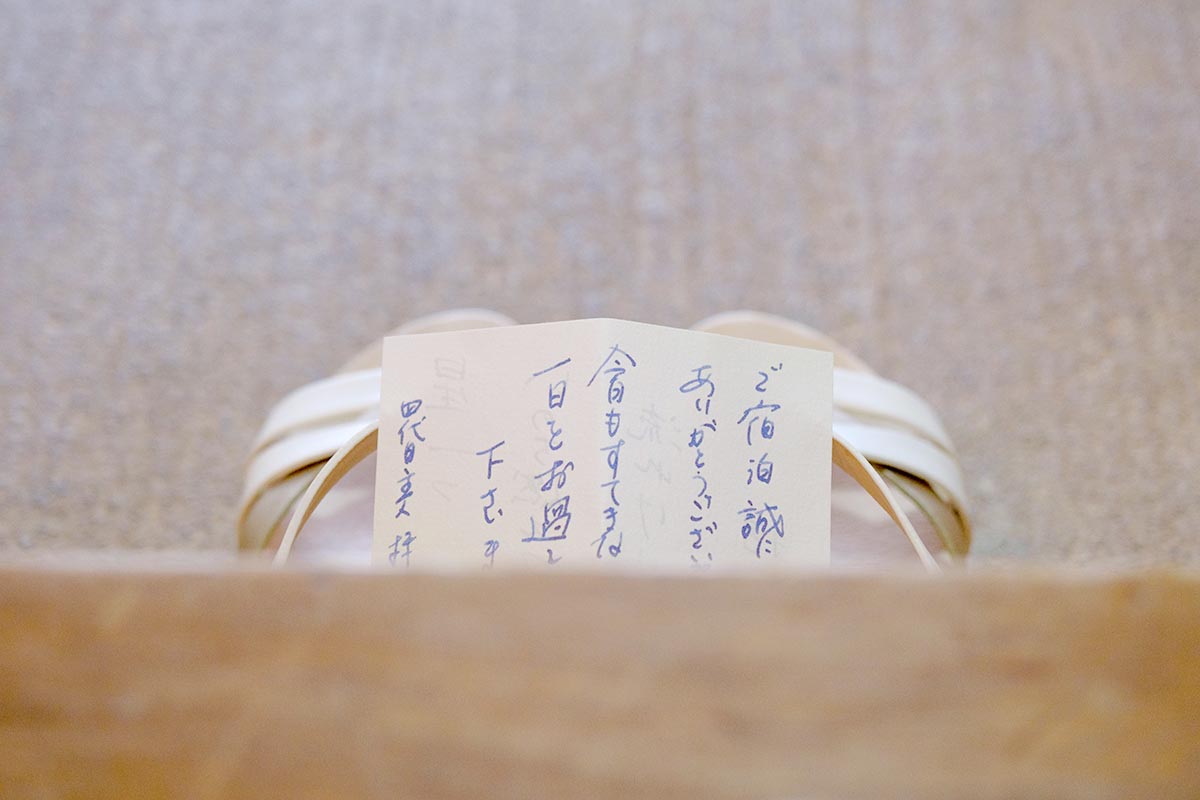 ご宿泊誠に
ありがとうござい
今日もすてきな
一日をお過し
下さ
四代目